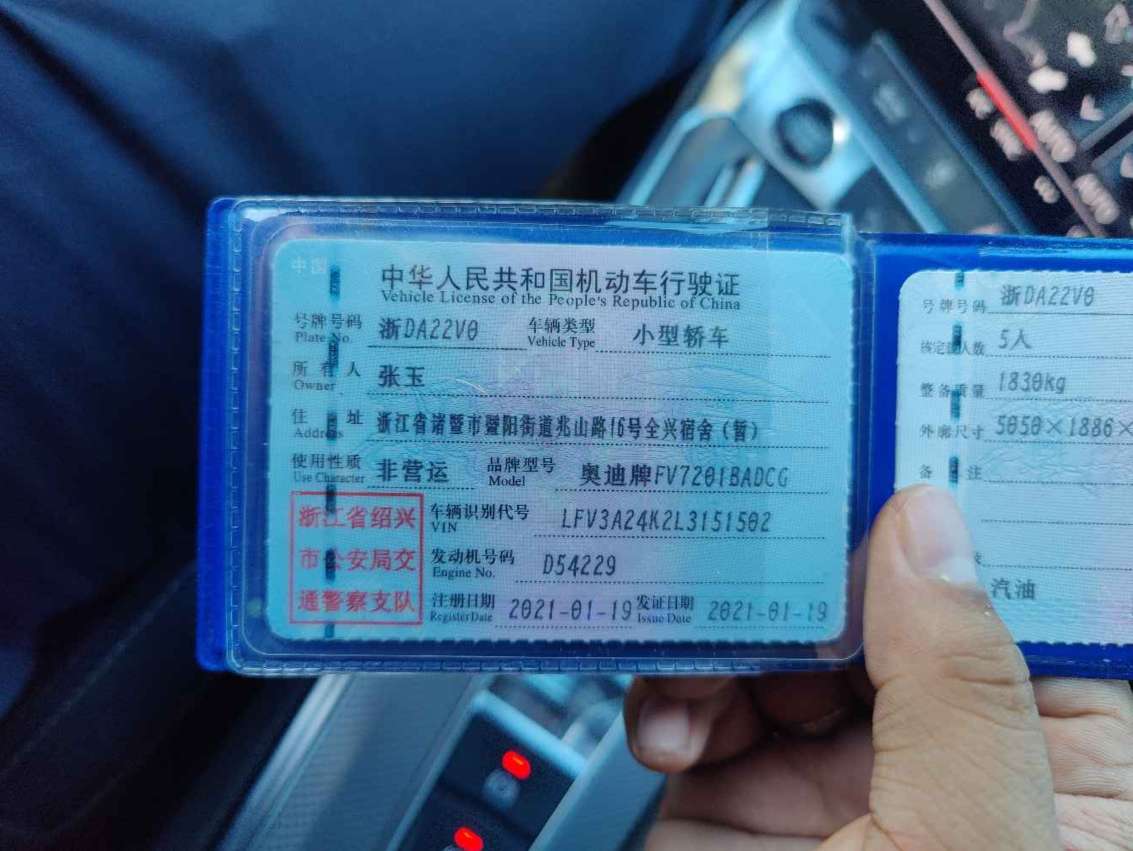 中国
中华人民共和国机动车行驶证
Vehicle License of the People's Republic of China
号牌号码 浙DA22V0 车辆类型 小型轿车
Plate No. Vehicle Type
所有人 张玉
Owner
住址 浙江省诸暨市暨阳街道兆山路16号全兴宿舍（暂）
Address
使用性质 非营运 品牌型号 奥迪牌FV7201BADCG
Use Character Model
浙江省绍兴
市公安局交
通警察支队
车辆识别代号 LFV3A24K2L3151502
VIN
发动机号码 D54229
Engine No.
注册日期 2021-01-19 发证日期 2021-01-19
Register Date Issue Date
号牌号码 浙DA22V0
核定载人数 5人
整备质量 1830kg
外廓尺寸 5050×1886×
备注
汽油